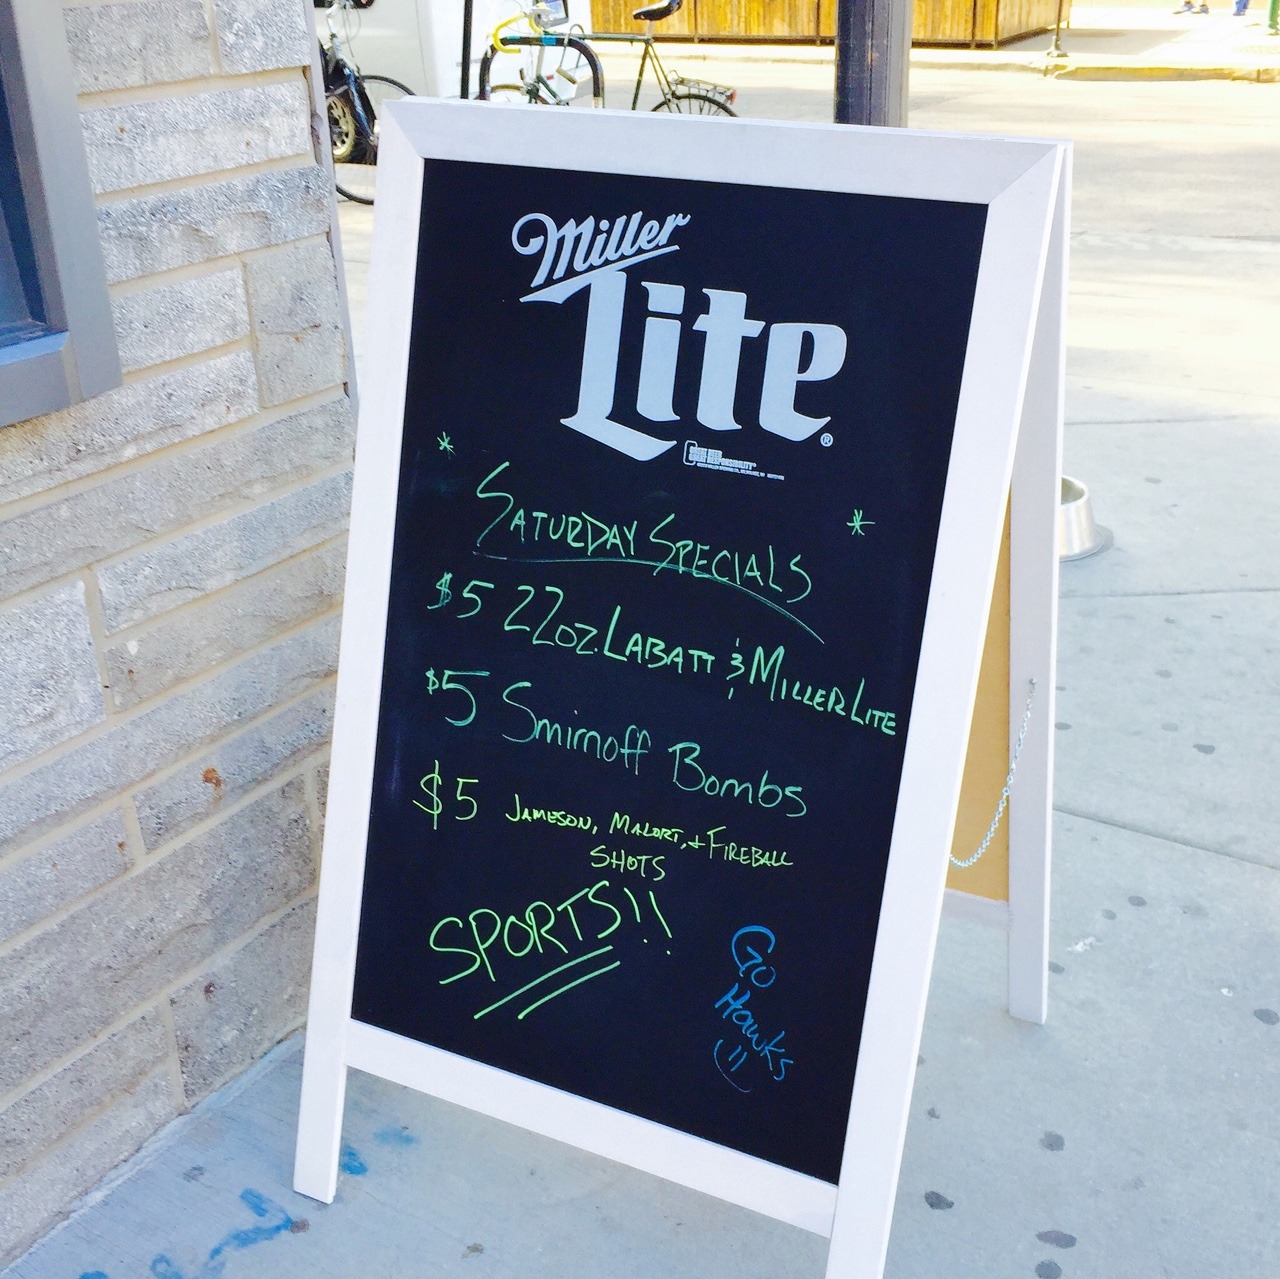 Miller
Lite®
GREAT BEER
GREAT RESPONSIBILITY®
* SATURDAY SPECIALS *
$5 22oz. LABATT & MILLER LITE
$5 Smirnoff Bombs
$5 JAMESON, MALORT, + FIREBALL
SHOTS
SPORTS!!
Go
Hawks